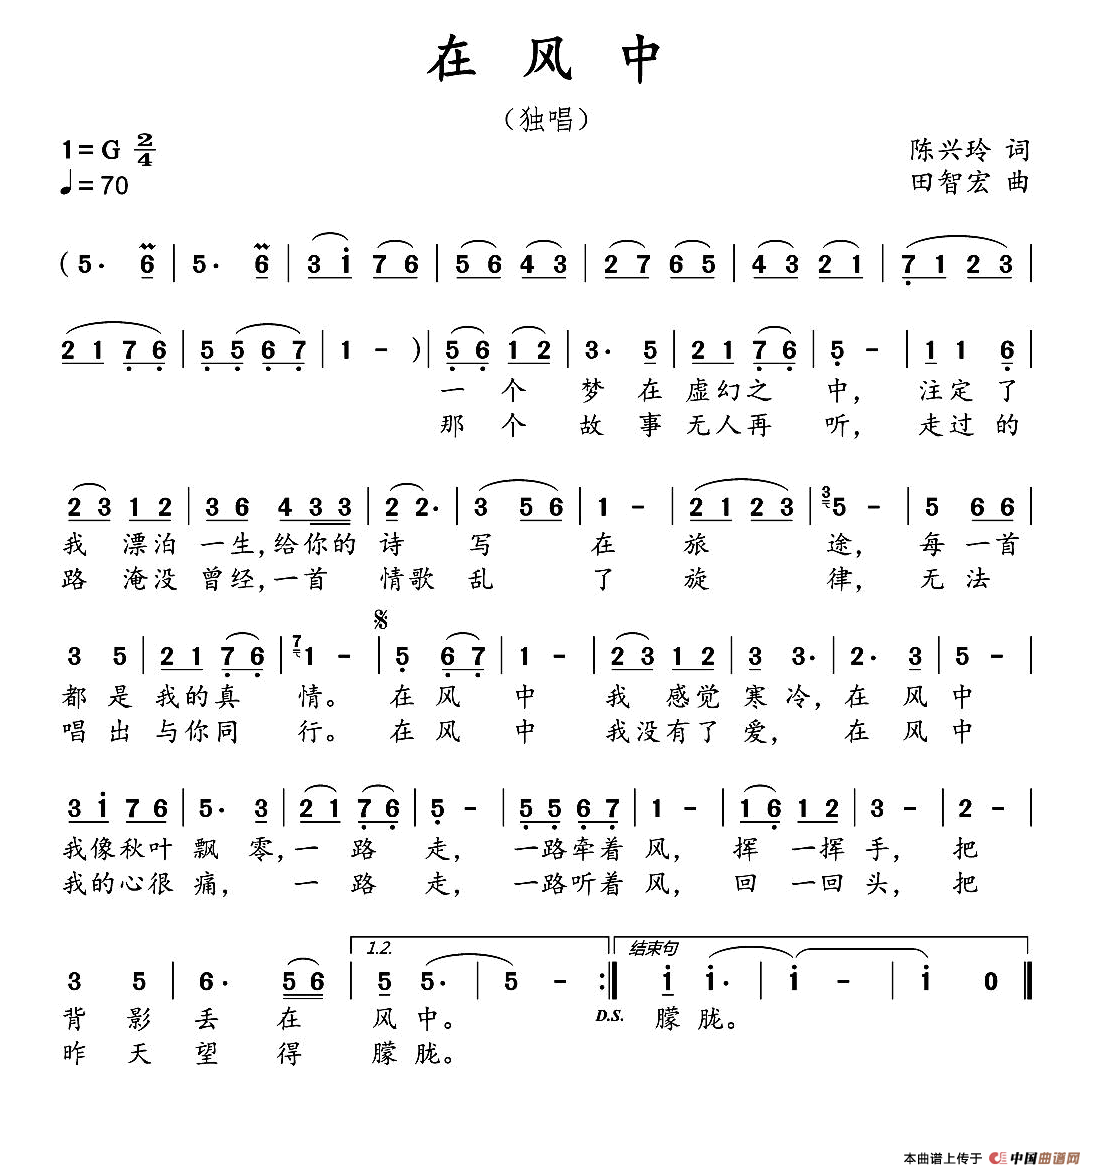 在 风 中
（独唱）
1=G 2/4
陈兴玲 词
♩=70
田智宏 曲
( 5· 6 | 5· 6 | 3 i 7 6 | 5 6 4 3 | 2 7 6 5 | 4 3 2 1 | 7 1 2 3 |
2 1 7 6 | 5 5 6 7 | 1 - ) | 5 6 1 2 | 3· 5 | 2 1 7 6 | 5 - | 1 1 6 |
一 个 梦 在 虚幻之 中， 注定了
那 个 故 事 无人再 听， 走过的
2 3 1 2 | 3 6 4 3 3 | 2 2· | 3 5 6 | 1 - | 2 1 2 3 | 3 5 - | 5 6 6 |
我 漂泊 一生，给你的 诗 写 在 旅 途， 每 一首
路 淹没 曾经，一首 情歌 乱 了 旋 律， 无 法
𝄋
3 5 | 2 1 7 6 | 7 1 - | 5 6 7 | 1 - | 2 3 1 2 | 3 3· | 2· 3 | 5 - |
都 是 我的真 情。 在 风 中 我 感觉 寒冷，在 风 中
唱 出 与你同 行。 在 风 中 我没有了 爱， 在 风 中
3 i 7 6 | 5· 3 | 2 1 7 6 | 5 - | 5 5 6 7 | 1 - | 1 6 1 2 | 3 - | 2 - |
我像秋叶 飘 零，一 路 走， 一路牵着 风， 挥 一挥 手， 把
我的心很 痛， 一 路 走， 一路听着 风， 回 一回 头， 把
1.2. 结束句
3 5 | 6· 5 6 | 5 5· | 5 - :| i i· | i - | i 0 ‖
背 影 丢 在 风 中。 D.S. 朦 胧。
昨 天 望 得 朦 胧。
本曲谱上传于 中国曲谱网